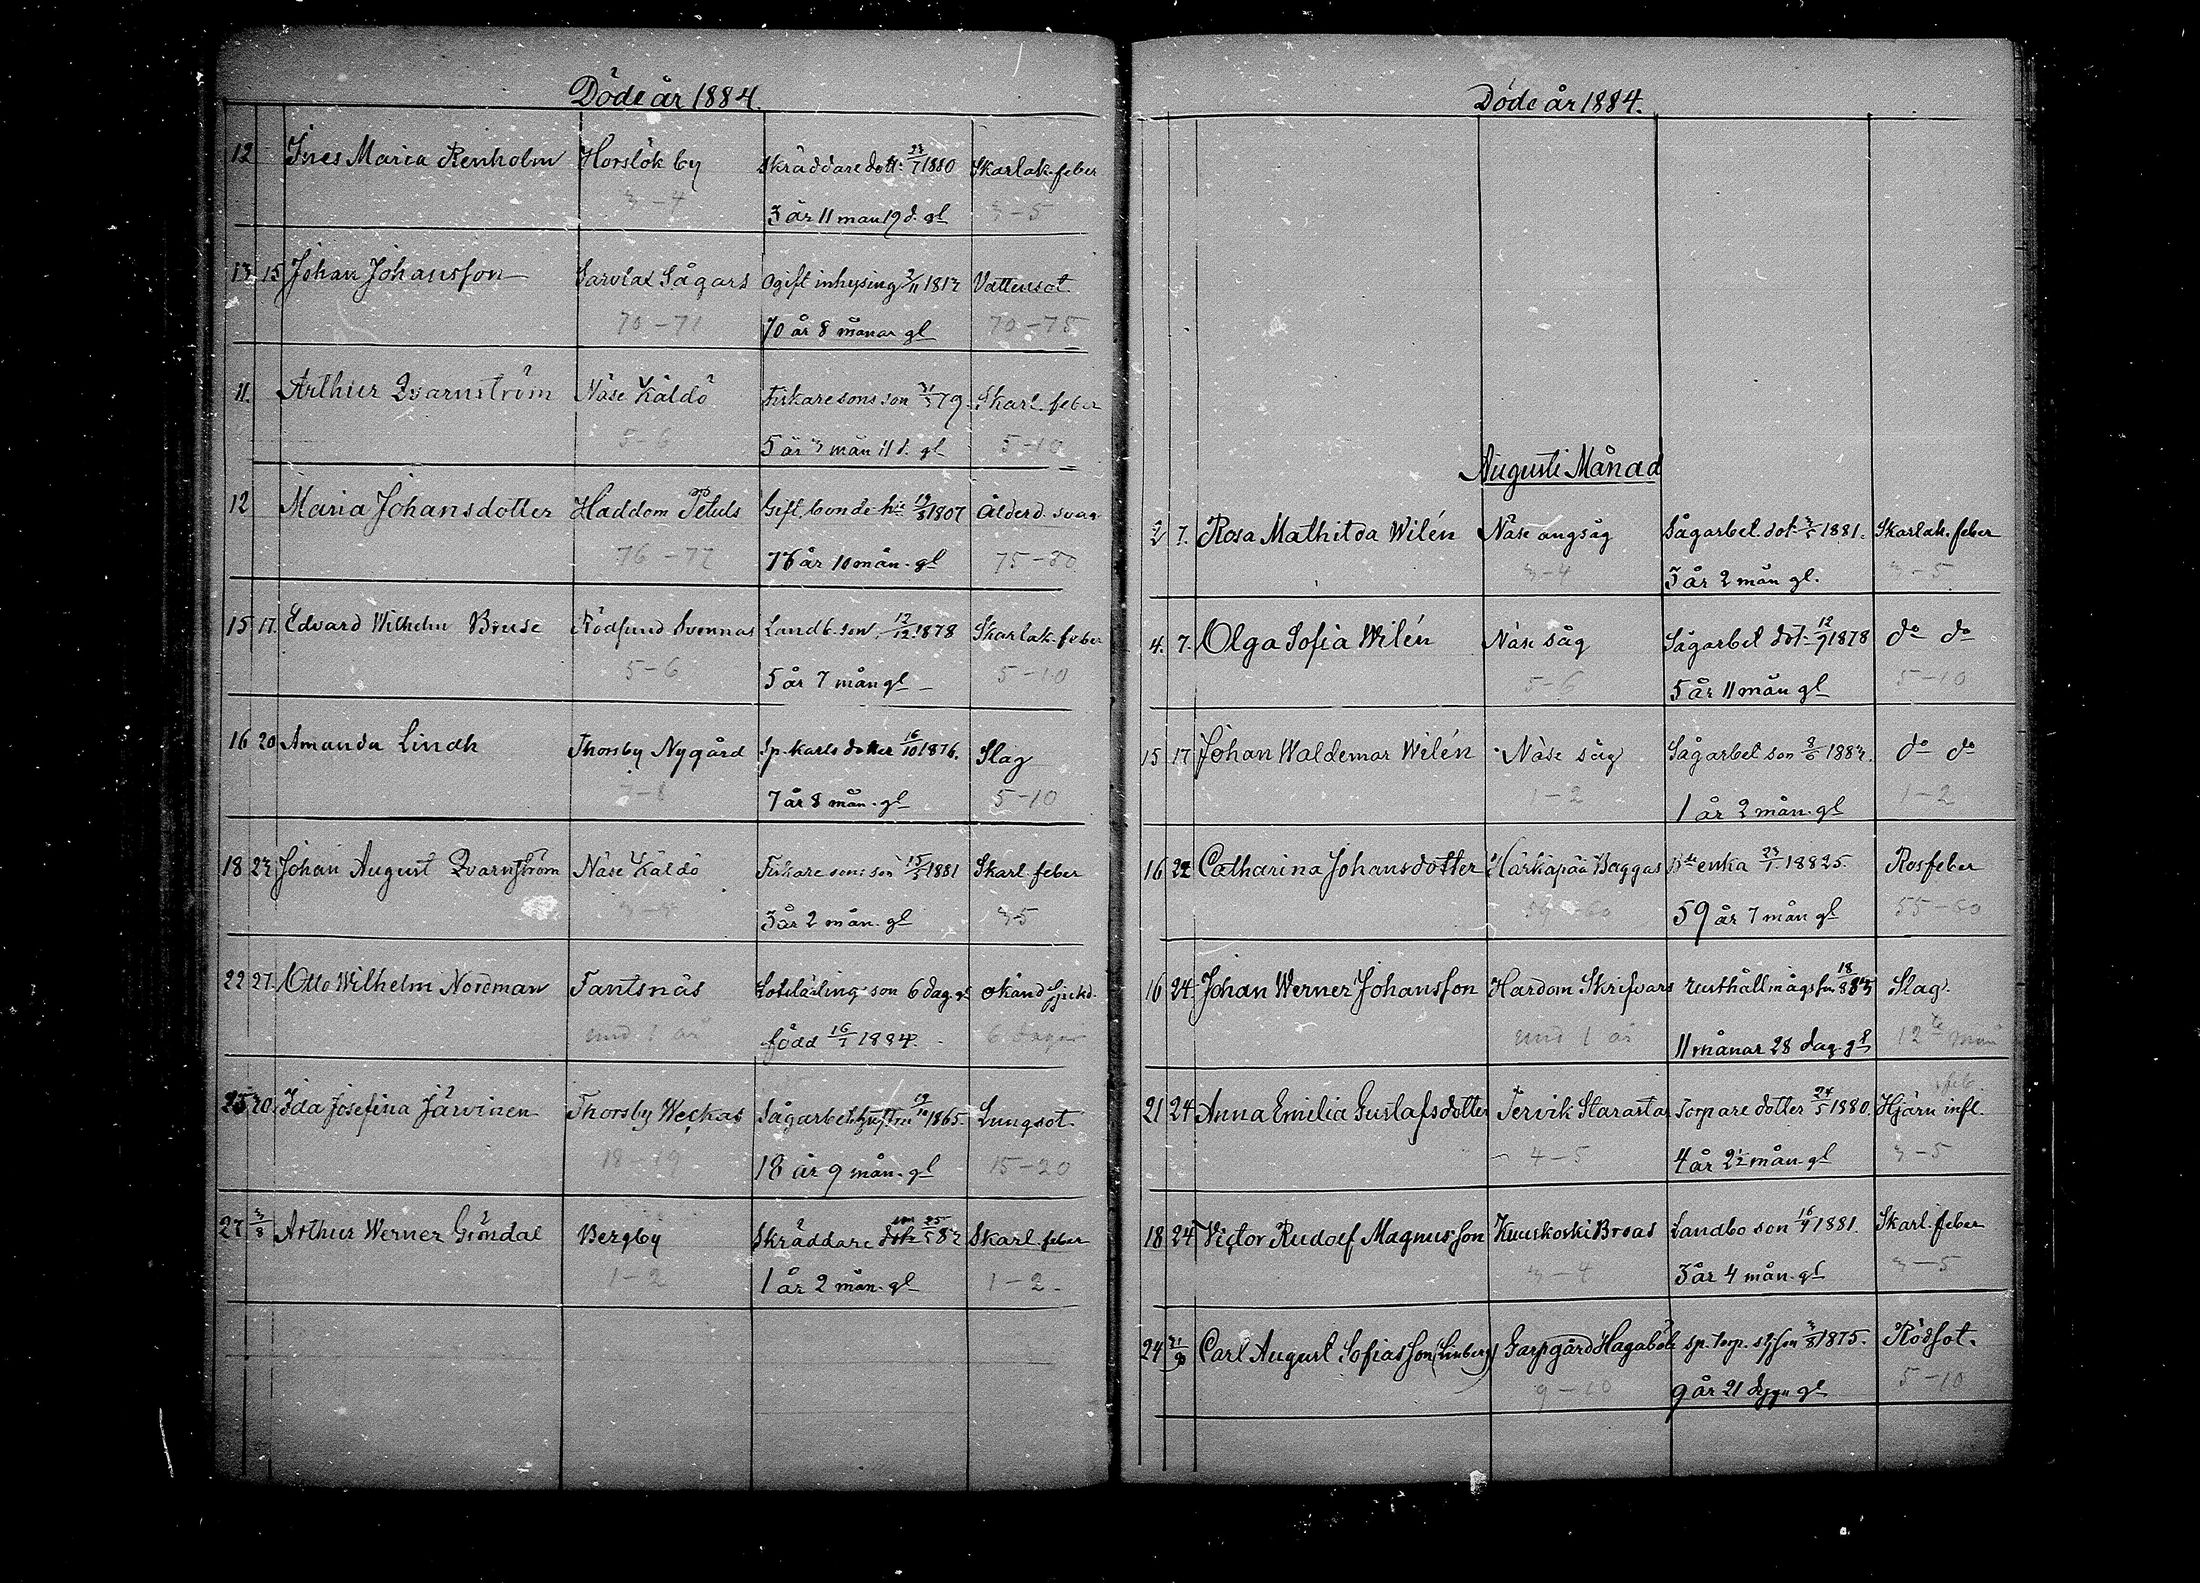 Döde år 1884.
12 Ines Maria Renholm Horslök by Skräddaredott. 23/7 1880 Skarlak. feber
3-4 3 år 11 mån 19 d. gl 3-5
13 15 Johan Johansson Sarvlax Sågars ogift inhysing 2/11 1813 Vattensot
70-71 70 år 8 månar gl 70-75
11. Arthur Qvarnström Näse Käldö Fiskaresons son 31/3 79. Skarl. feber
5-6 5 år 3 mån 11 d. gl 5-10
12 Maria Johansdotter Haddom Petuls Gift. bonde h:u 19/8 1807 Ålderd. svag
76-77 76 år 10 mån. gl 75-80
15 17. Edvard Wilhelm Bruse Rödsund Svennas Landb. son 12/12 1878 Skarlak. feber
5-6 5 år 7 mån gl 5-10
16 20 Amanda Lindh Thorsby Nygård Sp. karls dotter 16/10 1876. Slag
7-8 7 år 8 mån. gl 5-10
18 23 Johan August Qvarnström Näse Käldö Fiskare sons son 15/5 1881 Skarl. feber
3-4 3 år 2 mån. gl 3-5
22 27. Otto Wilhelm Nordman Tantsnäs Lotslärling son 6 dag. gl okänd sjukd.
und 1 år född 16/7 1884. 6 dagar
25 30 Ida Josefina Järvinen Thorsby Weckas Sågarbet. hustru 19/10 1865. Lungsot.
18-19 18 år 9 mån. gl 15-20
27 3/8 Arthur Werner Gröndal Bergby Skräddare dott son 25/5 83 Skarl. feber
1-2 1 år 2 mån. gl 1-2.
Döde år 1884.
Augusti Månad
2 7. Rosa Mathilda Wilén Näse ångsåg Sågarbet. dot. 3/5 1881. Skarlak. feber
3-4 3 år 2 mån gl. 3-5
4. 7. Olga Sofia Wilén Näse såg Sågarbet dot. 12/9 1878 do do
5-6 5 år 11 mån gl 5-10
15 17 Johan Waldemar Wilén Näse såg Sågarbet son 8/6 1883. do do
1-2 1 år 2 mån. gl 1-2
16 22 Catharina Johansdotter Härkäpää Baggas B:de enka 23/1 18825. Rosfeber
59-60 59 år 7 mån gl 55-60
16 24. Johan Werner Johansson Hardom Skrifvars rusthåll mågs son 18/8 83 Slag.
und 1 år 11 månar 28 dag. gl 12te mån
21 24 Anna Emilia Gustafsdotter Tervik Starastas Torpare dotter 24/5 1880. Hjärn infl. feb.
4-5 4 år 2½ mån. gl 3-5
18 24 Victor Rudolf Magnusson Kuuskoski Broas Landbo son 16/4 1881. Skarl. feber
3-4 3 år 4 mån. gl 3-5
24 31/8 Carl August Sofiasson (Linberg) Garpgård Hagaböle sp. torp. stjson 3/8 1875. Rödsot.
9-10 9 år 21 dygn gl 5-10